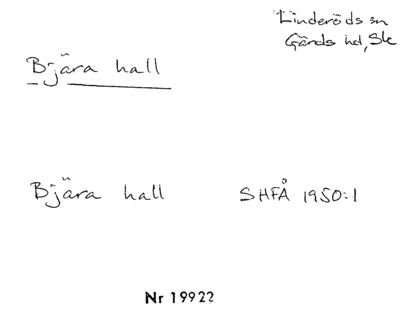 Linderöds sn
Gärds hd, Sk
Bjära hall
Bjära hall SHFÅ 1950:1
Nr 19922